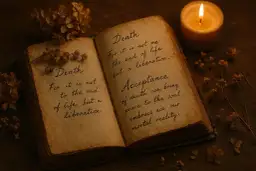 Death,
For it is not
to the end
of life, but a
liberation.
Death
For it is not
the end of life
but a liberation.
Acceptance
of death, we bring
peace to the soul
embrace our
mortal reality.